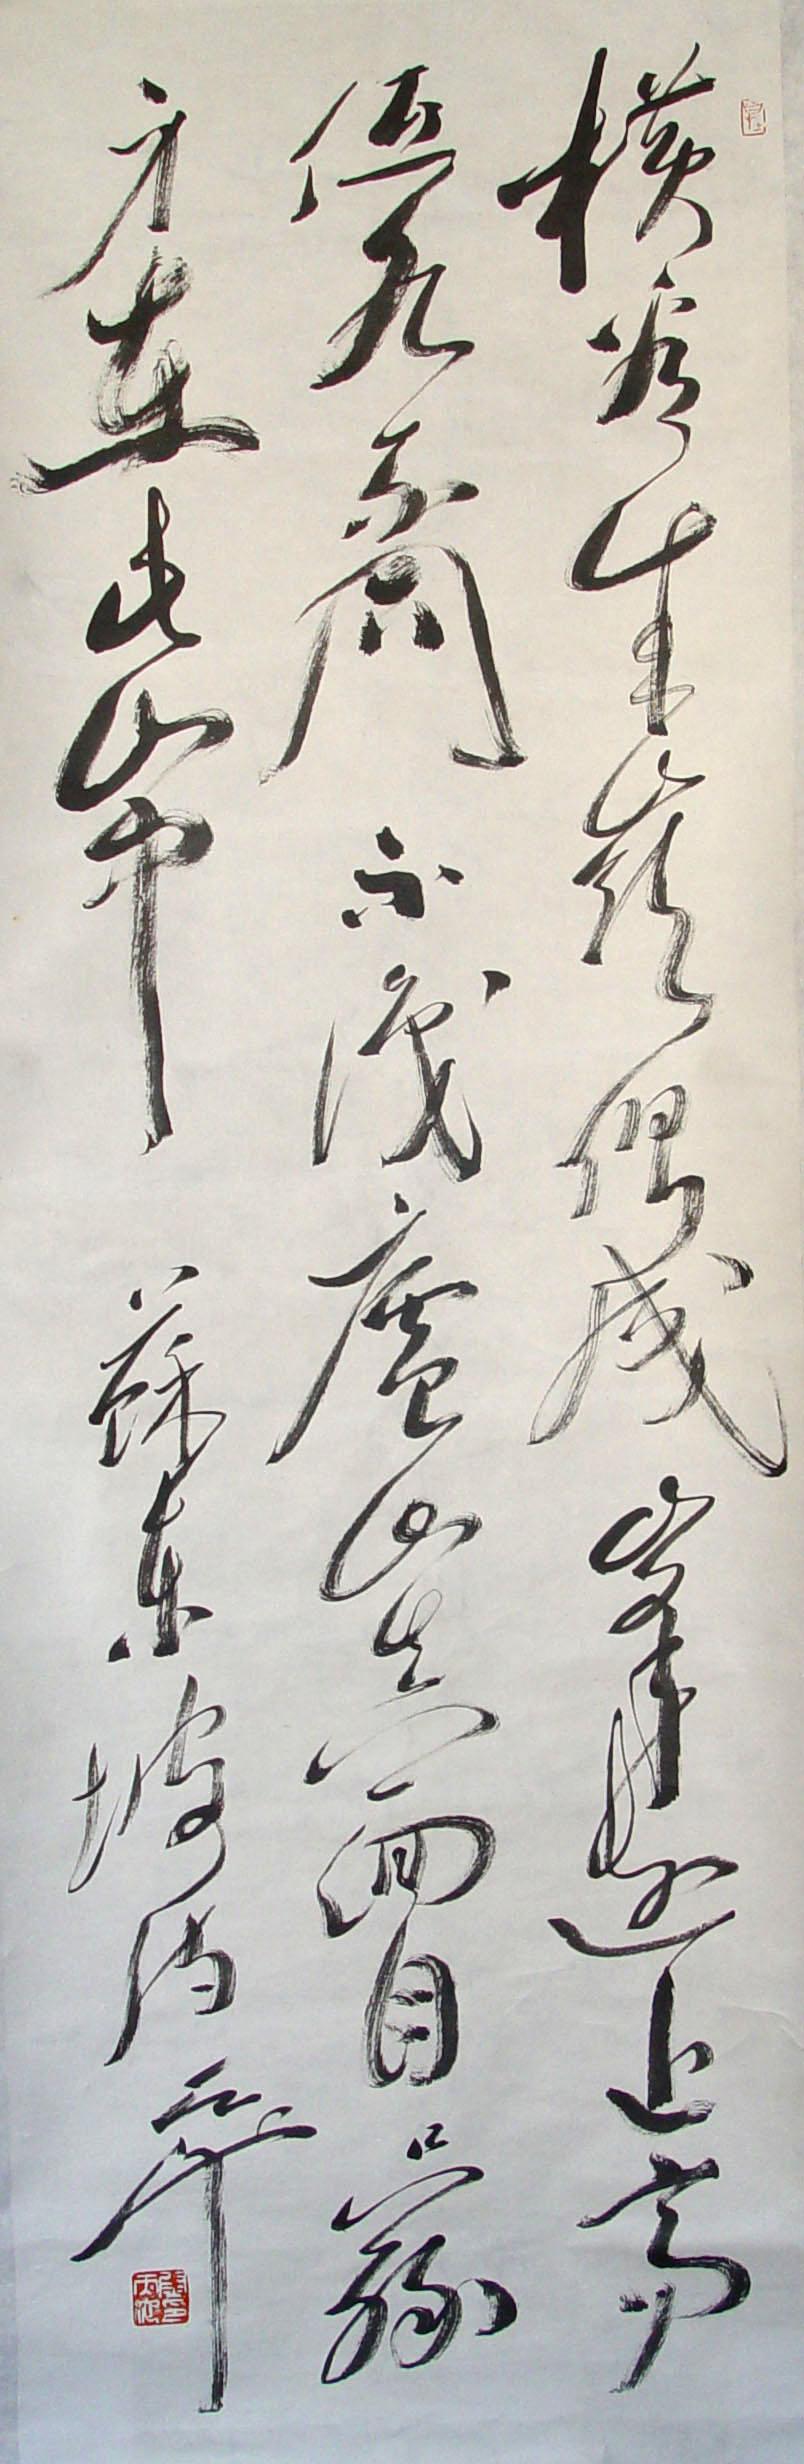 橫看生嶺側成峯遠近高
低各不同不識廬山真面目只緣
身在此山中 蘇東坡詩